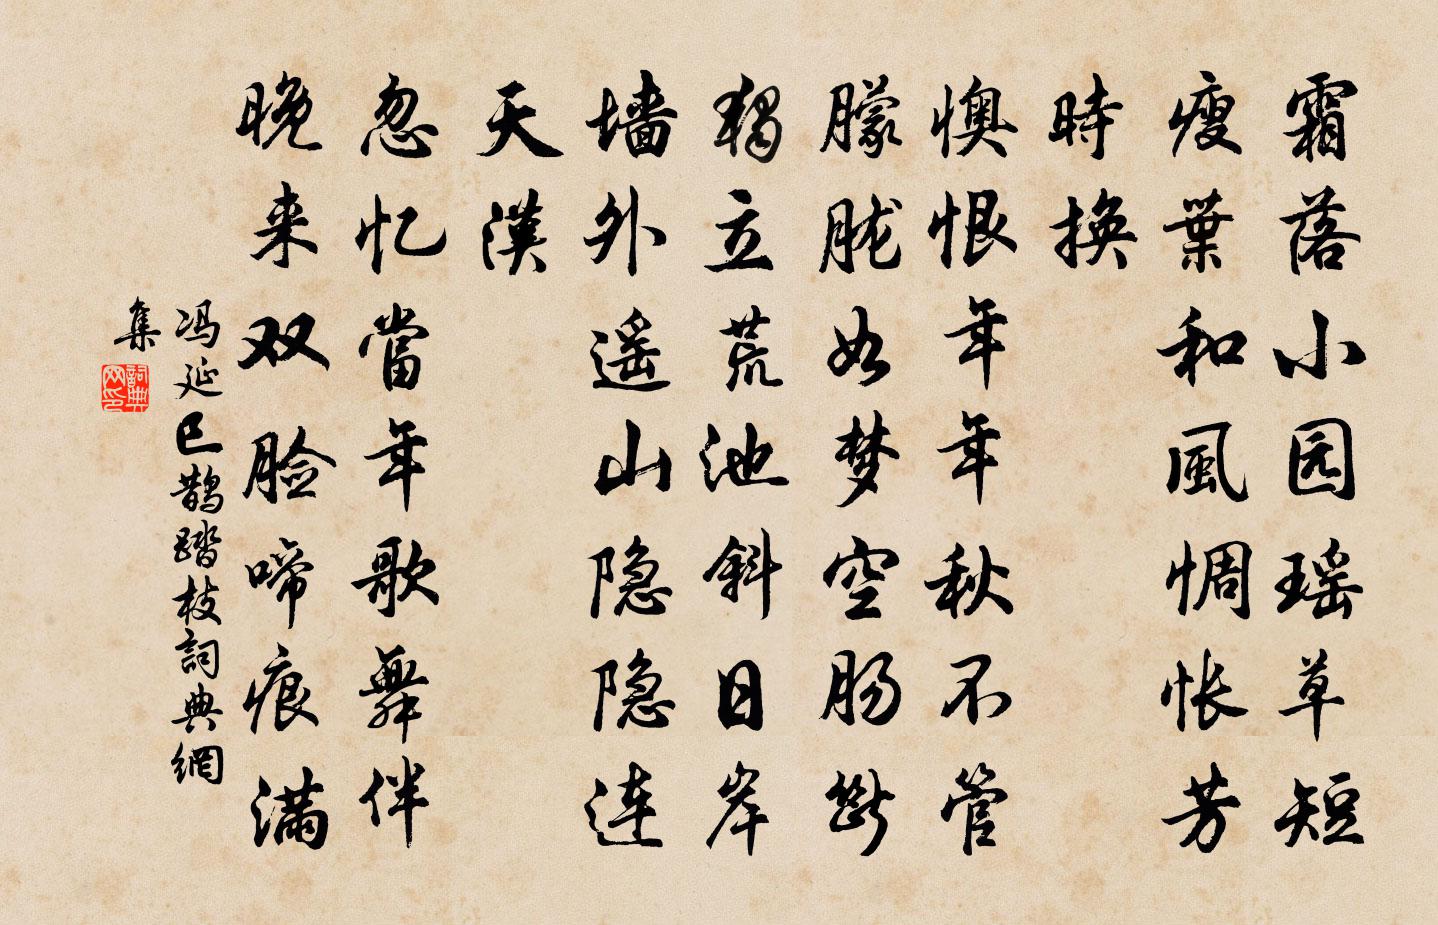 霜落小园瑶草短
瘦葉和風惆怅芳
時换
懊恨年年秋不管
朦胧如梦空肠斷
獨立荒池斜日岸
墙外遥山隐隐连
天漢
忽忆當年歌舞伴
晚来双脸啼痕满
冯延巳鹊踏枝詞典網
集
詞典
网印